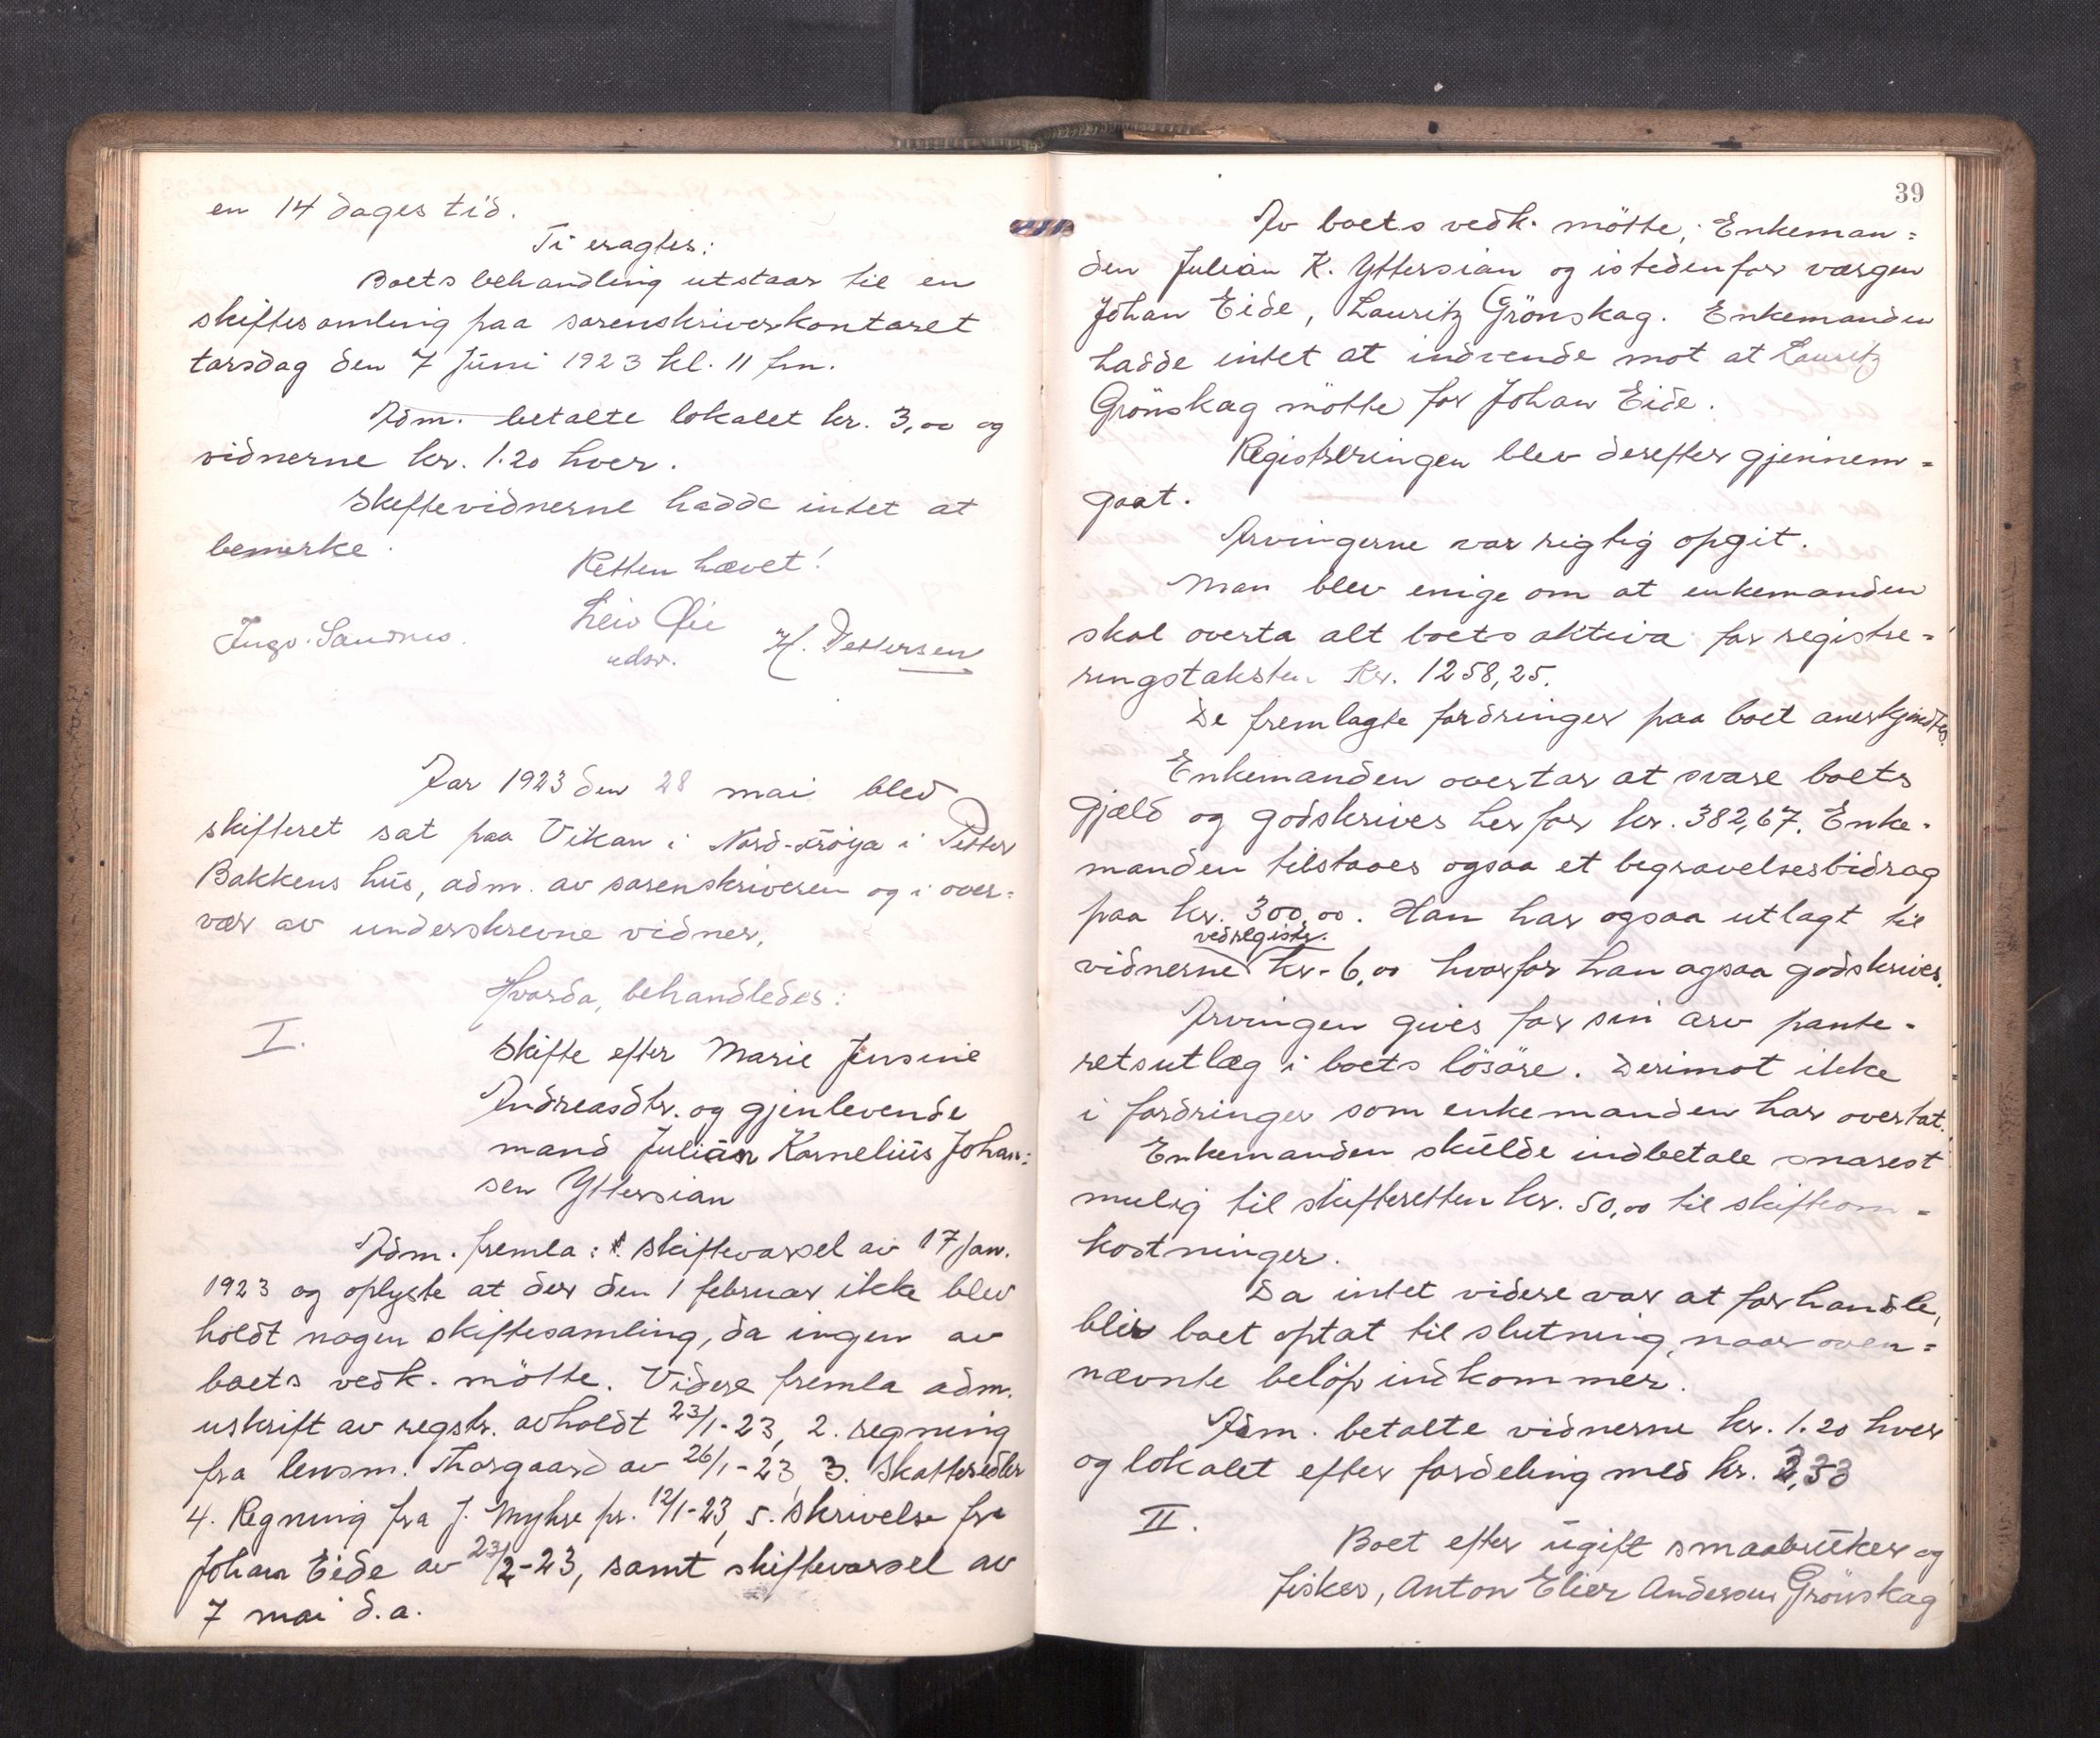 en 14 dages tid.
Ti eragtes:
Boets behandling utstaar til en
skiftesamling paa sorenskriverkontoret
torsdag den 7 juni 1923 kl. 11 fm.
Adm. betalte lokalet kr. 3,00 og
vidnerne kr. 1.20 hver.
Skiftevidnerne hadde intet at
bemerke.
Retten hævet!
Ingv. Sandnes. Leiv Øie H. Pettersen
edsv.
Aar 1923 den 28 mai blev
skifteret sat paa Vikan i Nord-Frøya i Petter
Bakkens hus, adm. av sorenskriveren og i over=
vær av underskrevne vidner,
Hvorda, behandledes:
I.
Skifte efter Marie Jensine
Andreasdtr. og gjenlevende
mand Julian Kornelius Johan=
sen Yttersian
Adm. fremla: 1. skiftevarsel av 17 jan.
1923 og oplyste at der den 1 februar ikke blev
holdt nogen skiftesamling, da ingen av
boets vedk. mötte. Videre fremla adm.
uskrift av regstr. avholdt 23/1-23, 2. regning
fra lensm. Thorgaard av 26/1-23, 3. Skatteredler
4. Regning fra J. Myhre pr. 12/1-23, 5. skrivelse fra
Johan Eide av 23/2-23, samt skiftevarsel av
7 mai d.a.
39
Av boets vedk. mötte; Enkeman=
den Julian K. Yttersian og istedenfor værgen
Johan Eide, Lauritz Grönskag. Enkemanden
hadde intet at indvende mot at Lauritz
Grönskag mötte for Johan Eide.
Registreringen blev derefter gjennem=
gaat.
Arvingerne var rigtig opgit.
Man blev enige om at enkemanden
skal overta alt boets aktiva for registre=
ringstaksten Kr. 1258,25.
De fremlagte fordringer paa boet anerkjendtes.
Enkemanden overtar at svare boets
gjæld og godskrives herfor kr. 382,67. Enke-
manden tilstaaes ogsaa et begravelsesbidrag
paa kr. 300,00. Han har ogsaa utlagt til
ved registr.
vidnerne kr. 6,00 hvorfor han ogsaa godskrives.
Arvingen gives for sin arv pante-
retsutlæg i boets lösöre. Derimot ikke
i fordringer som enkemanden har overtat.
Enkemanden skulde indbetale snarest
mulig til skifteretten kr. 50,00 til skifteom=
kostninger.
Da intet videre var at forhandle,
blir boet optat til slutning, naar oven=
nævnte belöp indkommer.
Adm. betalte vidnerne kr. 1.20 hver
og lokalet efter fordeling med kr. 2,33
II.
Boet efter ugift smaabruker og
fisker, Anton Elier Andersen Grönskag